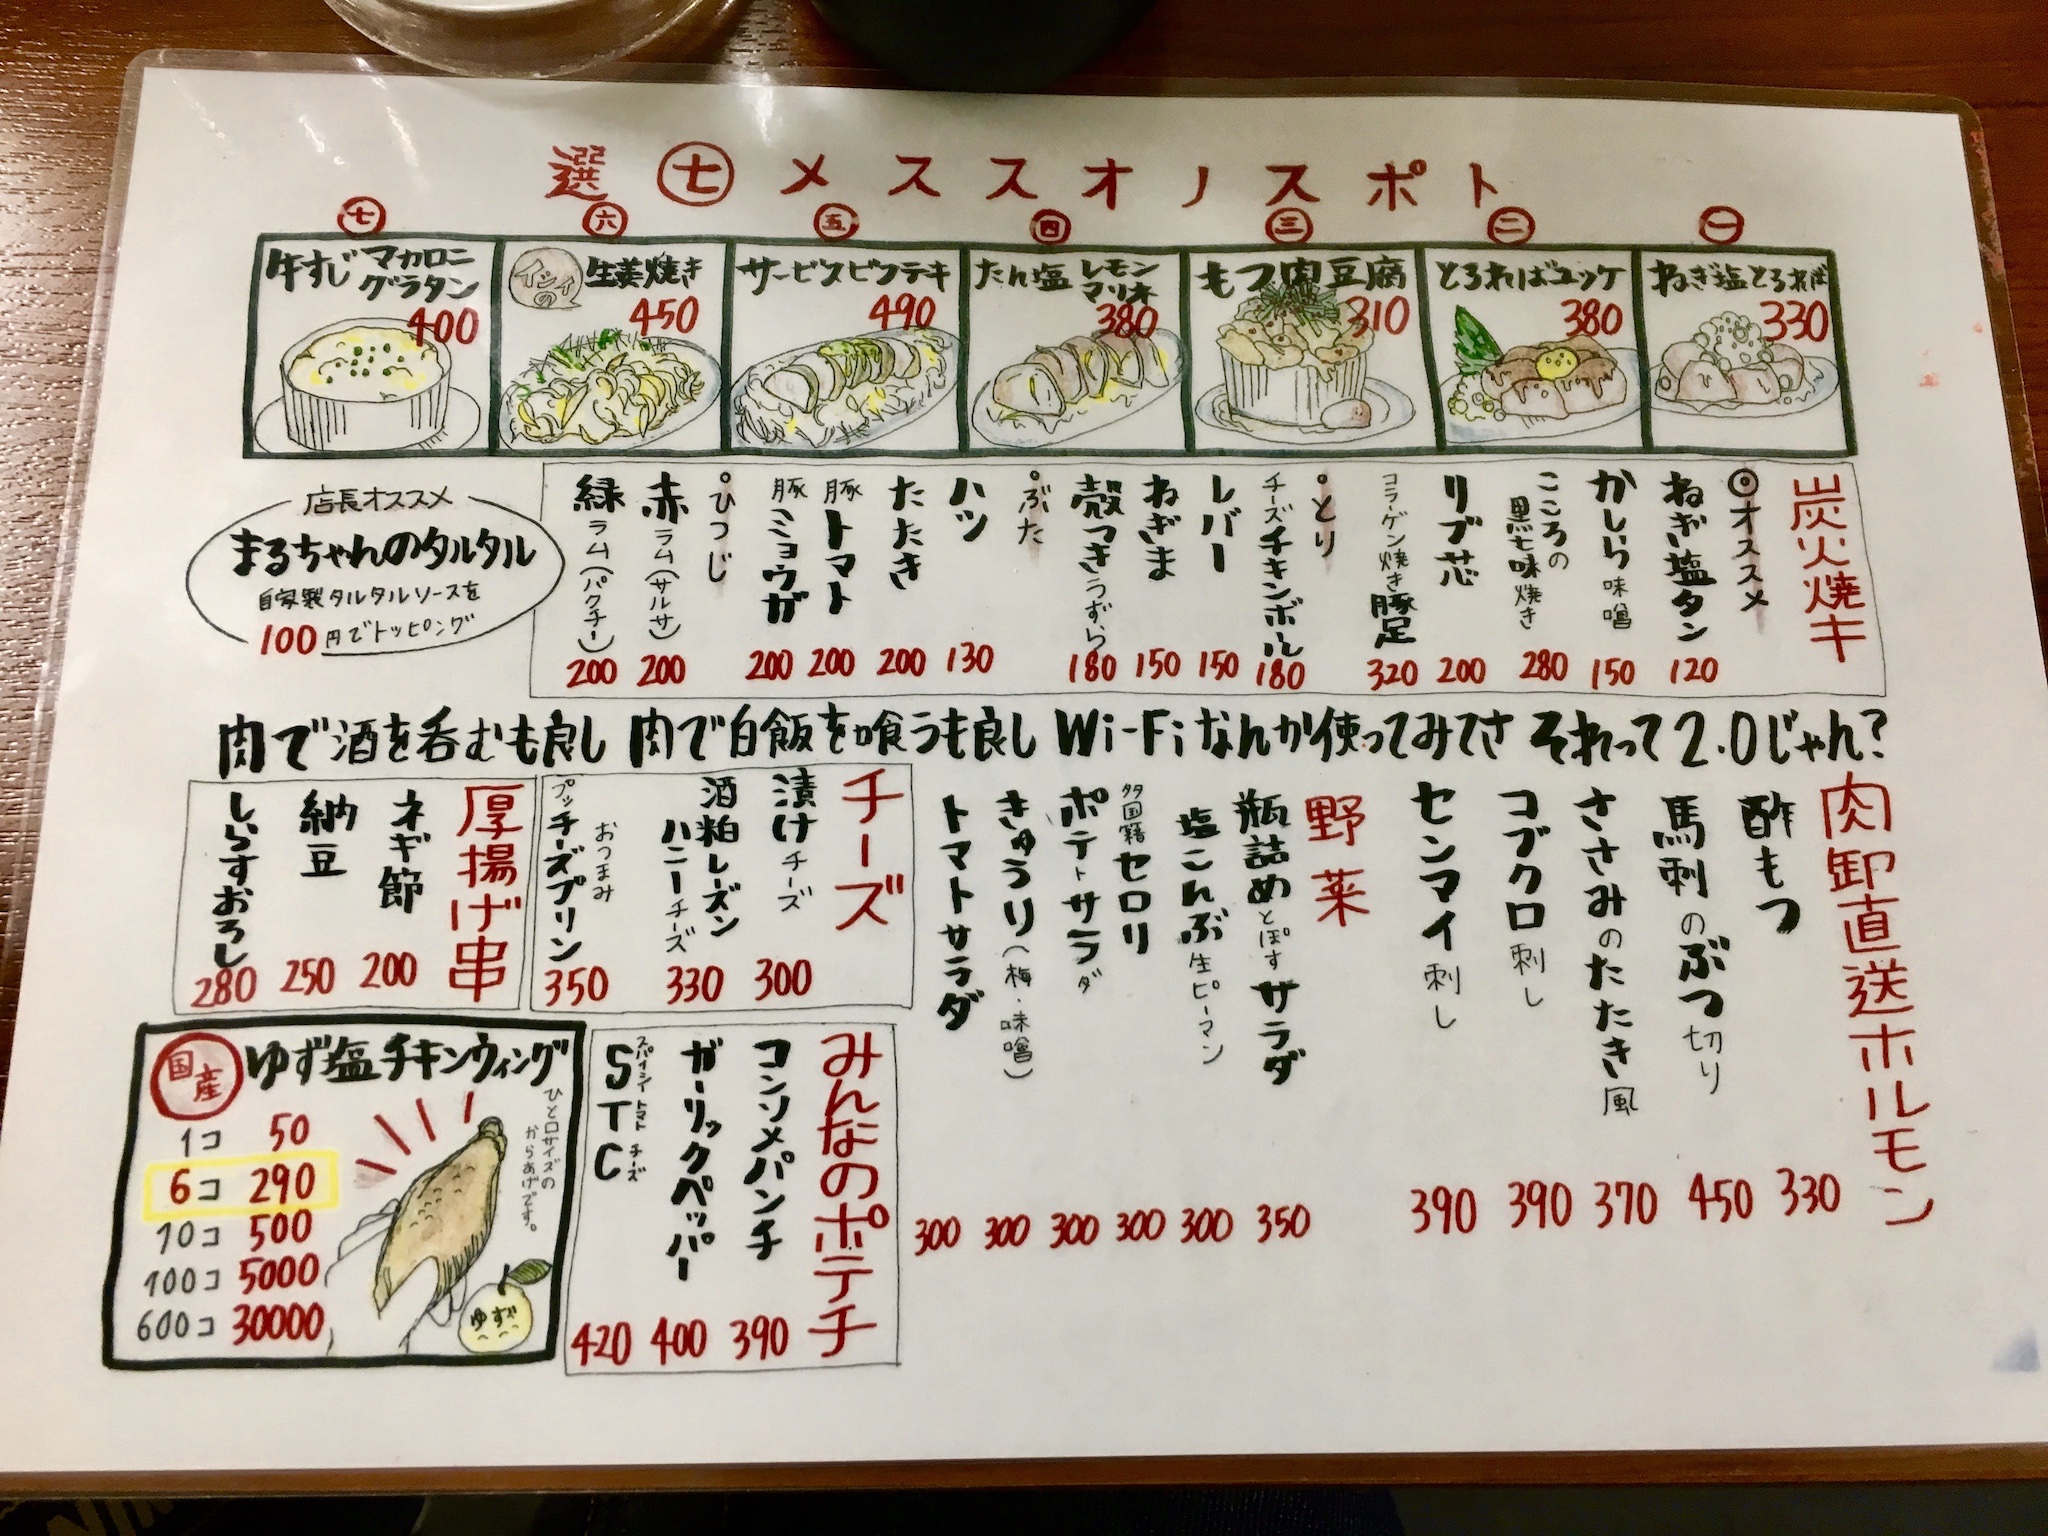 トポスノオススメ㊆選
㊀
ねぎ塩とろればぁ
330
㊁
とろればユッケ
380
㊂
もつ肉豆腐
310
㊃
たん塩レモンマリネ
380
㊄
サービスビフテキ
490
㊅
イシイの
生姜焼き
450
㊆
牛すじマカロニグラタン
400
炭火焼キ
◎オススメ
ねぎ塩タン 120
かしら味噌 150
こころの黒七味焼き 280
リブ芯 200
コラーゲン焼き豚足 320
・とり
チーズチキンボール 180
レバー 150
ねぎま 150
殻つきうずら 180
・ぶた
ハツ 130
たたき 200
豚トマト 200
豚ミョウガ 200
・ひつじ
赤ラム(サルサ) 200
緑ラム(パクチー) 200
店長オススメ
まるちゃんのタルタル
自家製タルタルソースを
100円でトッピング
肉で酒を呑むも良し 肉で白飯を喰うも良し Wi-Fiなんか使ってみてさ それって2.0じゃん?
肉卸直送ホルモン
酢もつ 330
馬刺のぶつ切り 450
ささみのたたき風 370
コブクロ刺し 390
センマイ刺し 390
野菜
瓶詰めとぽすサラダ 350
塩こんぶ生ピーマン 300
多国籍セロリ 300
ポテトサラダ 300
きゅうり(梅・味噌) 300
トマトサラダ 300
チーズ
漬けチーズ 300
酒粕レーズンハニーチーズ 330
おつまみ
プッチーズプリン 350
厚揚げ串
ネギ節 200
納豆 250
しらすおろし 280
みんなのポテチ
コンソメパンチ 390
ガーリックペッパー 400
STC
スパイシートマトチーズ
420
国産
ゆず塩チキンウィング
ひと口サイズの
からあげです。
1コ 50
6コ 290
10コ 500
100コ 5000
600コ 30000
ゆず